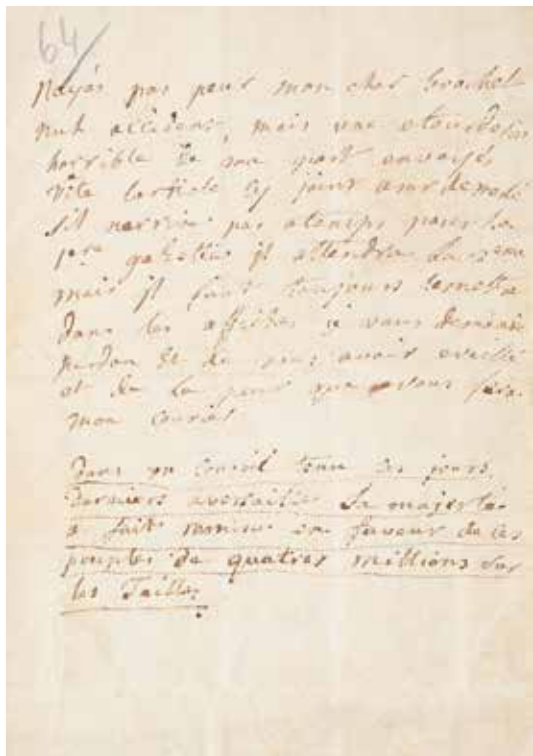 64/
Nayés pas peur mon cher
nul accident, mais une etourderie
horrible de ma part envoyés
vite larticle cy joint
sil narrive pas atemps pour la
pre gazettes il attendra la 2eme
mais il faut toujours lemettre
dans les affiches je vous demande
pardon et de vous avoir eveillé
et de la peur que vous fera
mon courier
Dans un Conseil tenu ces jours
derniers aversailles Sa majesté
a fait remise en faveur de ces
peuples de quatres millions sur
les Tailles